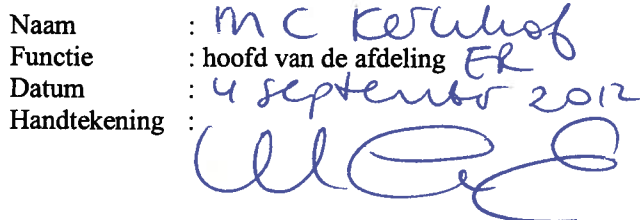 Naam : MC Kerkhof
Functie : hoofd van de afdeling ER
Datum : 4 september 2012
Handtekening :